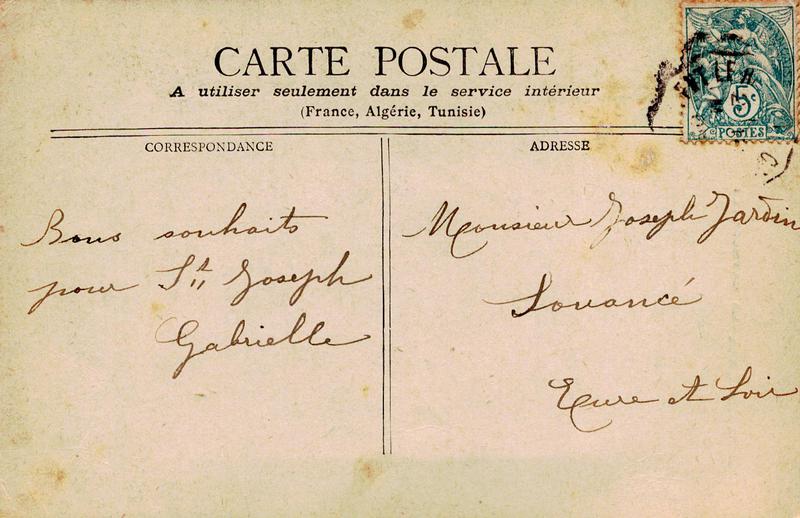 CARTE POSTALE
A utiliser seulement dans le service intérieur
(France, Algérie, Tunisie)
CORRESPONDANCE
Bons souhaits
pour St Joseph
Gabrielle
ADRESSE
Monsieur Joseph Jardin
Louancé
Eure et Loir
5c
POSTES